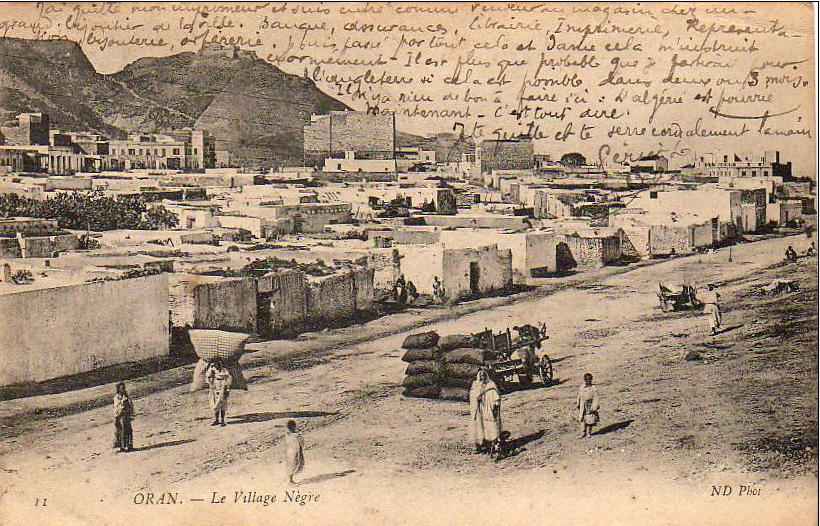 J'ai quitté mon imprimeur et suis entré comme vendeur au magasin chez un
grand bijoutier de la ville. Banque, assurances, librairie, Imprimerie, Représenta-
tion, bijouterie, orfèvrerie. J'ai passé partout cela et dame cela m'instruit
énormement. Il est plus que probable que je partirai pour
l'angleterre si cela est possible dans deux ou 3 mois.
Il n'y a rien de bon à faire ici: L'algérie est pourrie
maintenant. C'est tout dire.
Je te quitte et te serre cordialement ta main
11 ORAN. — Le Village Nègre
ND Phot